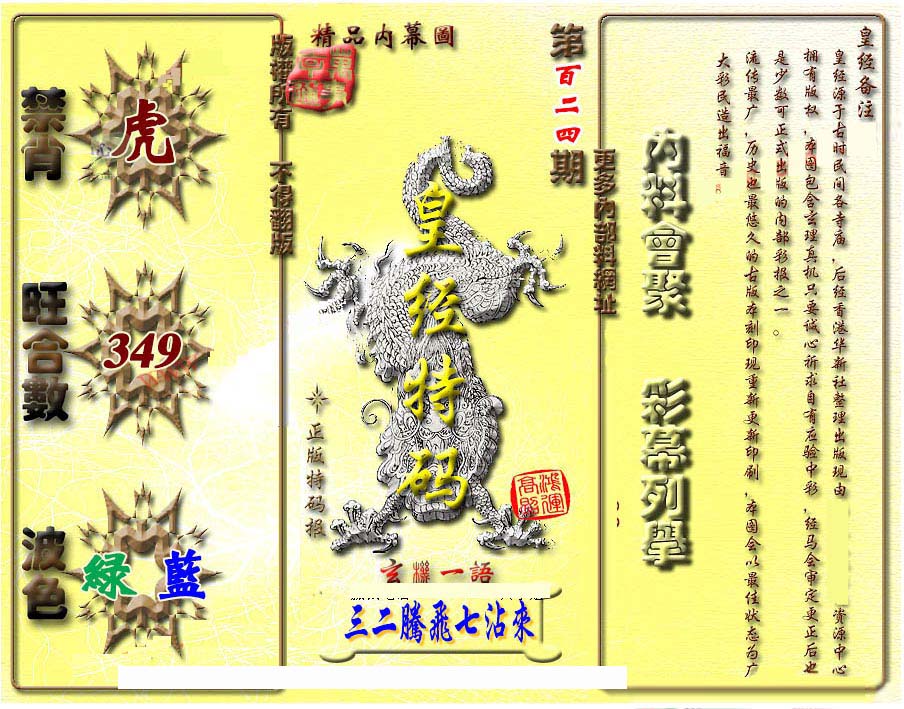 皇经备注
皇经源于古时民间各寺庙，后经香港华新社整理出版现由
资源中心
拥有版权，本图包含玄理真机只要诚心祈求自有应验中彩，经马会审定更正后也
是少数可正式出版的内部彩报之一。
流传最广，历史也最悠久的古版本刻印现重新更新印刷，本图会以最佳状态为广
大彩民造出福音
内料會聚
彩幕列舉
更多內部料網址
第百二四期
精品内幕圖
皇经特码
正版特码报
鴻運高照
玄機一語
三二騰飛七沾來
版權所有 不得翻版
禁肖
虎
旺合數
349
波色
綠 藍